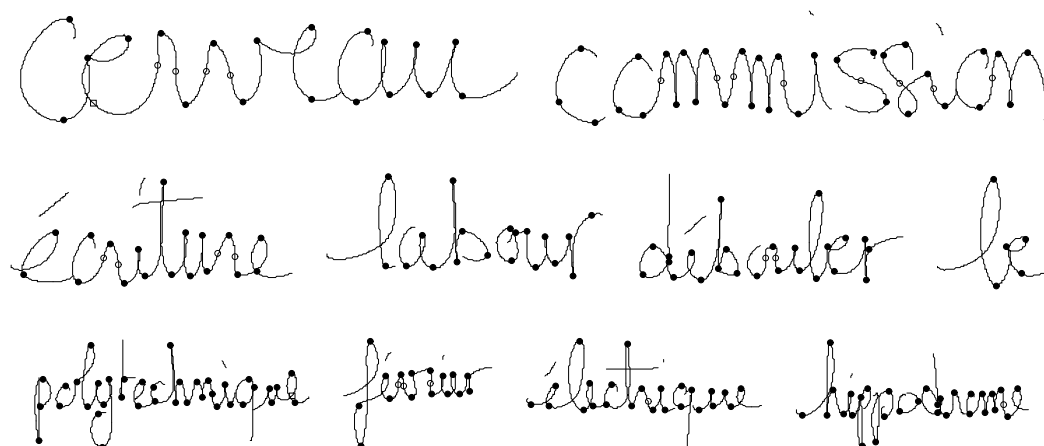 cerveau commission
écriture labour déboucler le
polytechnique février électrique hippodrome